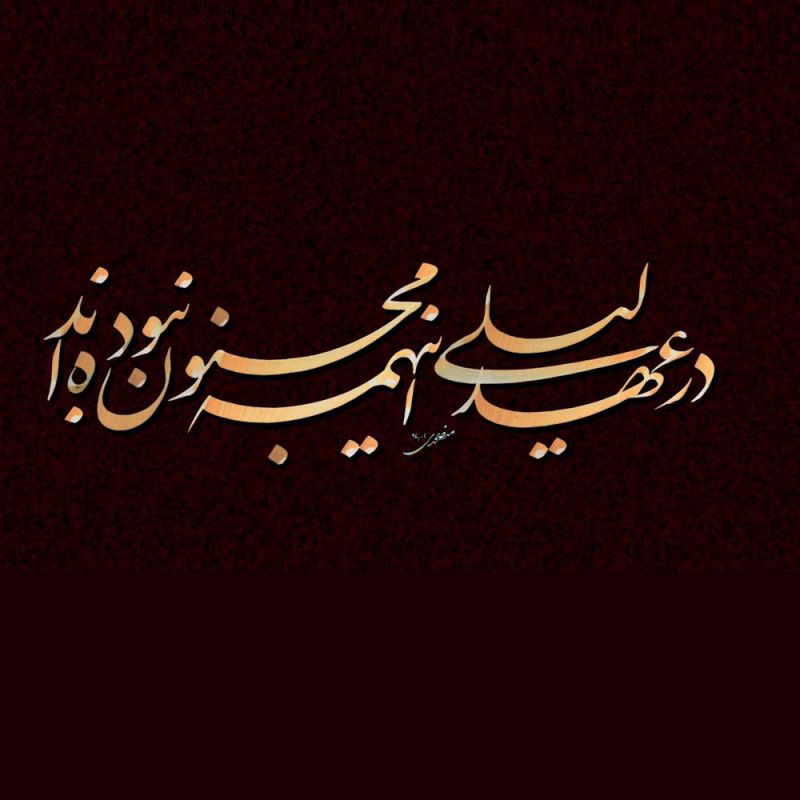 در عهد لیلی اینهمه مجنون نبوده اند